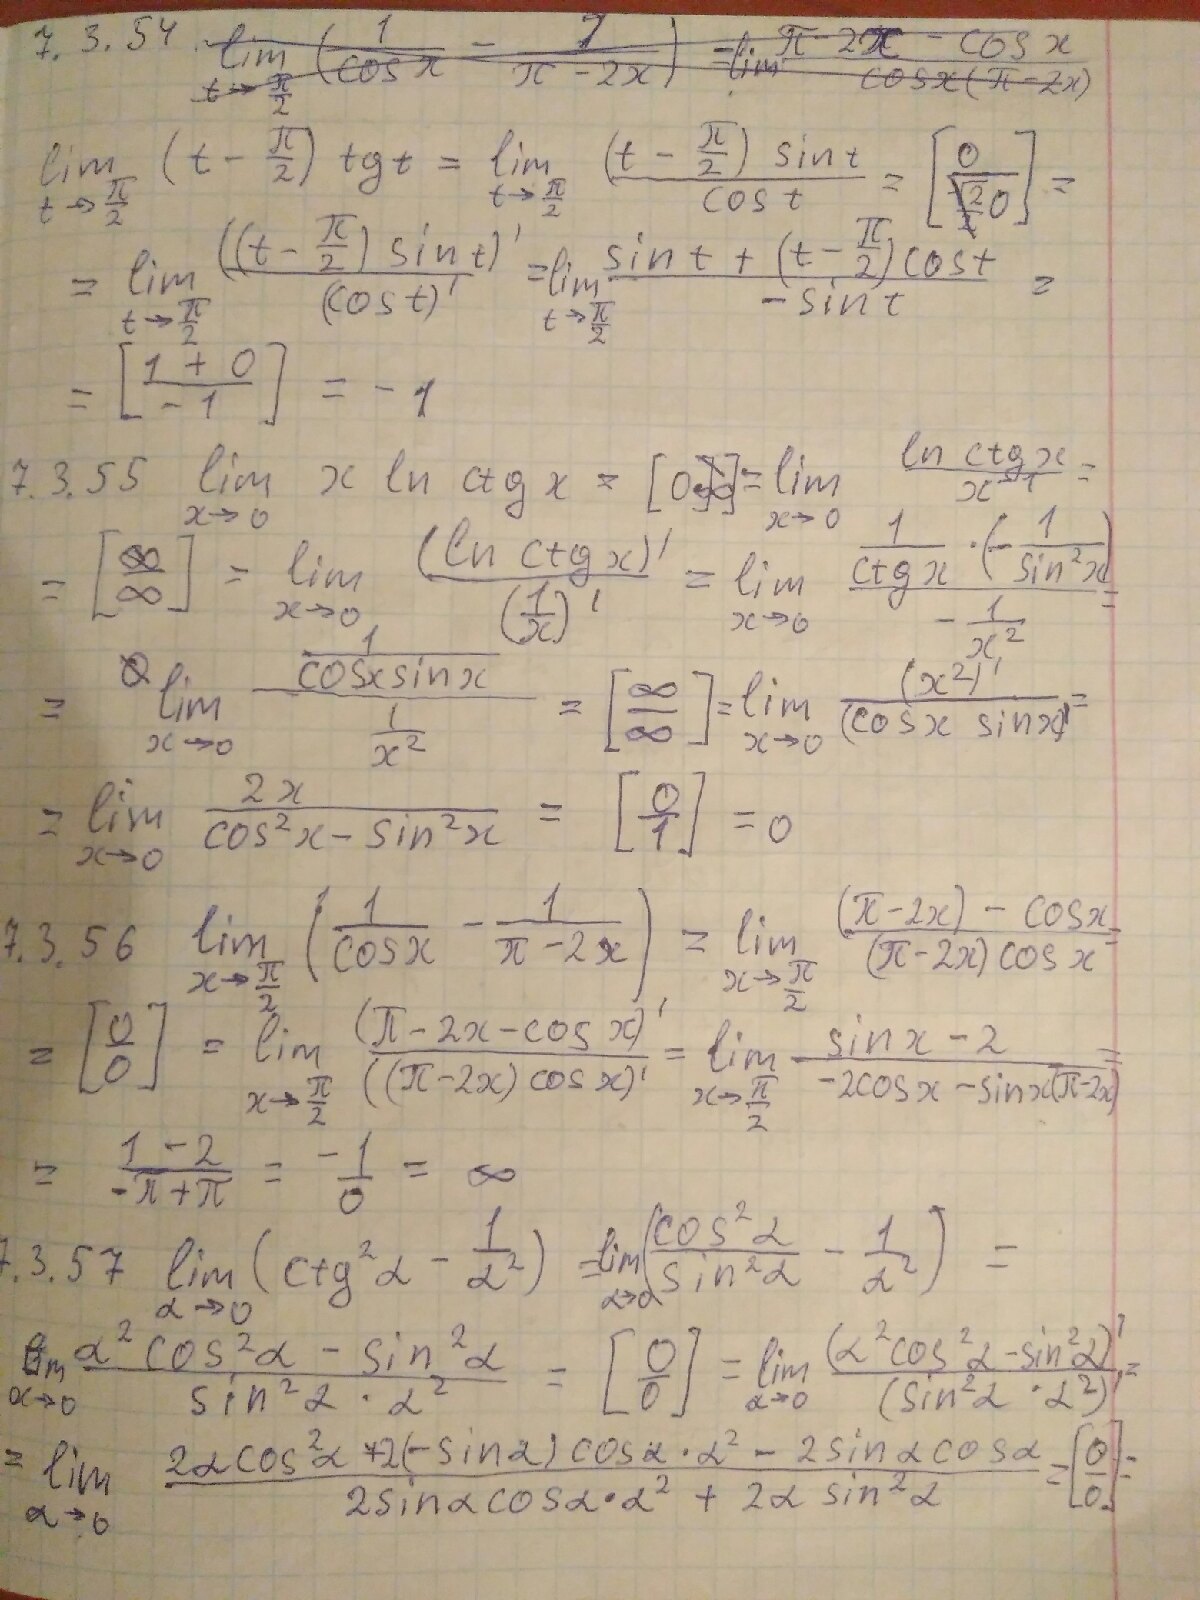 7.3.54. lim t→π/2 (1/cos x − 1/(π−2x)) = lim (π−2x − cos x)/(cos x(π−2x))
lim t→π/2 (t − π/2) tg t = lim t→π/2 ((t − π/2) sin t)/(cos t) = [0/0] =
= lim t→π/2 ((t − π/2) sin t)'/(cos t)' = lim t→π/2 (sin t + (t − π/2) cos t)/(−sin t) =
= [(1 + 0)/(−1)] = −1
7.3.55 lim x→0 x ln ctg x = [0·∞] = lim x→0 (ln ctg x)/(x⁻¹) =
= [∞/∞] = lim x→0 (ln ctg x)'/(1/x)' = lim x→0 (1/(ctg x) · (−1/(sin²x)))/(−1/x²) =
= lim x→0 (1/(cos x sin x))/(1/x²) = [∞/∞] = lim x→0 (x²)'/(cos x sin x)' =
= lim x→0 2x/(cos²x − sin²x) = [0/1] = 0
7.3.56 lim x→π/2 (1/cos x − 1/(π−2x)) = lim x→π/2 ((π−2x) − cos x)/((π−2x) cos x) =
= [0/0] = lim x→π/2 (π−2x−cos x)'/((π−2x) cos x)' = lim x→π/2 (sin x − 2)/(−2cos x − sin x(π−2x)) =
= (1 − 2)/(−π+π) = −1/0 = ∞
7.3.57 lim α→0 (ctg²α − 1/α²) = lim α→0 (cos²α/sin²α − 1/α²) =
lim α→0 (α² cos²α − sin²α)/(sin²α · α²) = [0/0] = lim α→0 (α²cos²α − sin²α)'/(sin²α · α²)' =
= lim α→0 (2α cos²α + 2(−sin α) cos α · α² − 2 sin α cos α)/(2 sin α cos α · α² + 2α sin²α) = [0/0] =